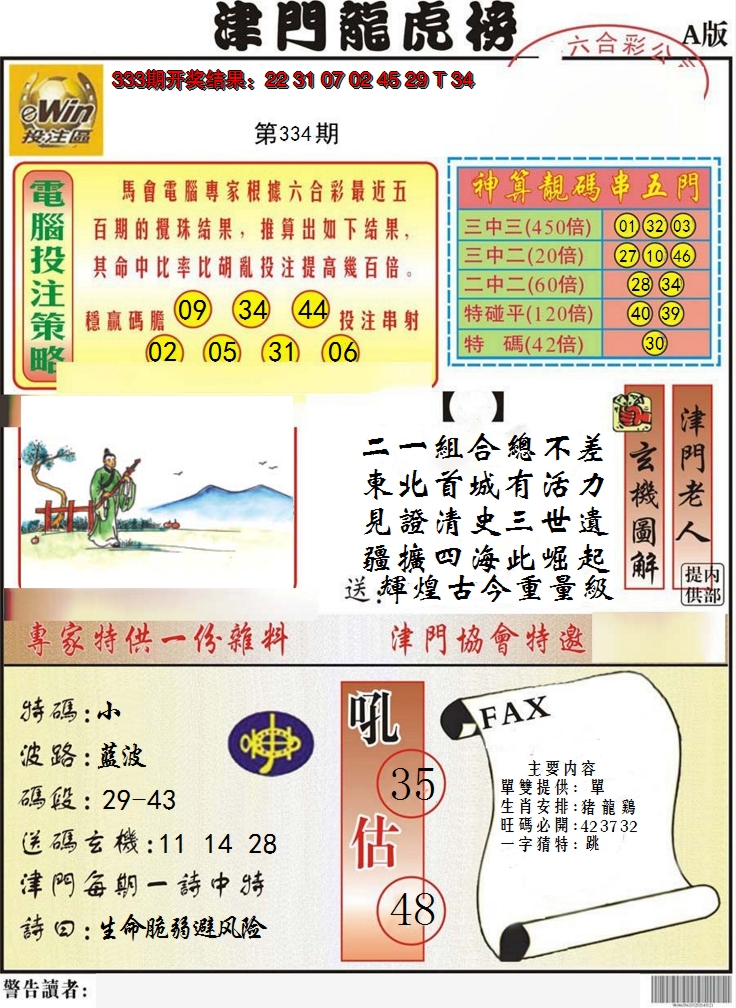 津門龍虎榜
A版
六合彩公
eWin
投注區
333期开奖结果：22 31 07 02 45 29 T 34
第334期
電腦投注策略
馬會電腦專家根據六合彩最近五
百期的攪珠结果，推算出如下结果，
其命中比率比胡亂投注提高幾百倍。
穩赢碼膽 09 34 44 投注串射
02 05 31 06
神算靚碼串五門
三中三(450倍) 01 32 03
三中二(20倍) 27 10 46
二中二(60倍) 28 34
特碰平(120倍) 40 39
特 碼(42倍) 30
【 】
二一組合總不差
東北首城有活力
見證清史三世遺
疆擴四海此崛起
送:輝煌古今重量級
玄機圖解
津門老人
提供
内部
專家特供一份雜料
津門協會特邀
特碼:小
波路:藍波
碼段:29-43
送碼玄機:11 14 28
津門每期一詩中特
詩曰:生命脆弱避风险
吼
35
估
48
FAX
主要内容
單雙提供: 單
生肖安排:猪龍鷄
旺碼必開:423732
一字猜特: 跳
警告讀者: